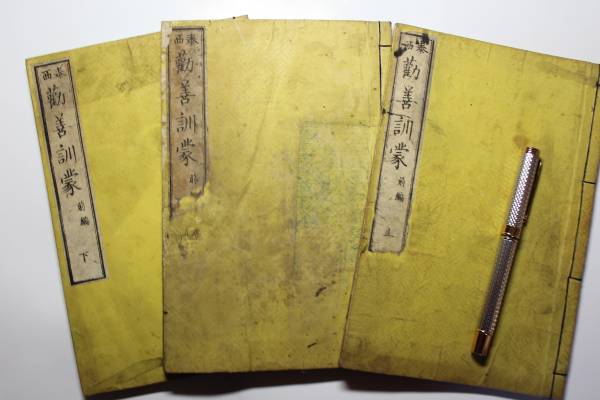 泰西
勧善訓蒙
前編
上
泰西
勧善訓蒙
前
泰西
勧善訓蒙
前編
下